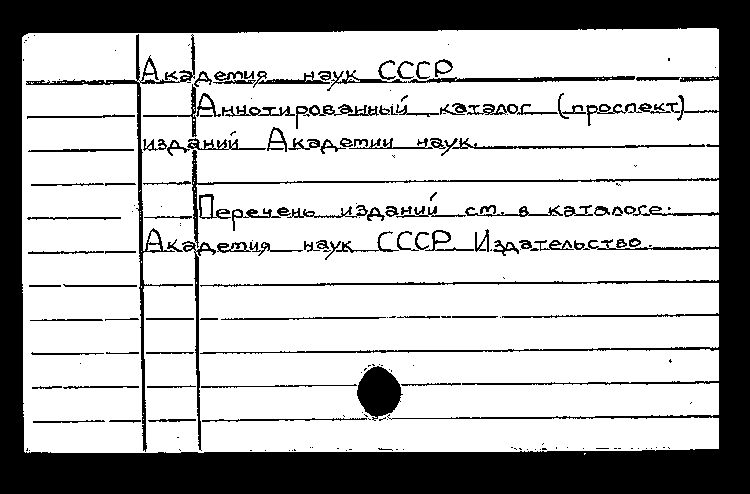 Академия наук СССР
Аннотированный каталог (проспект)
изданий Академии наук.
Перечень изданий см. в каталоге:
Академия наук СССР. Издательство.